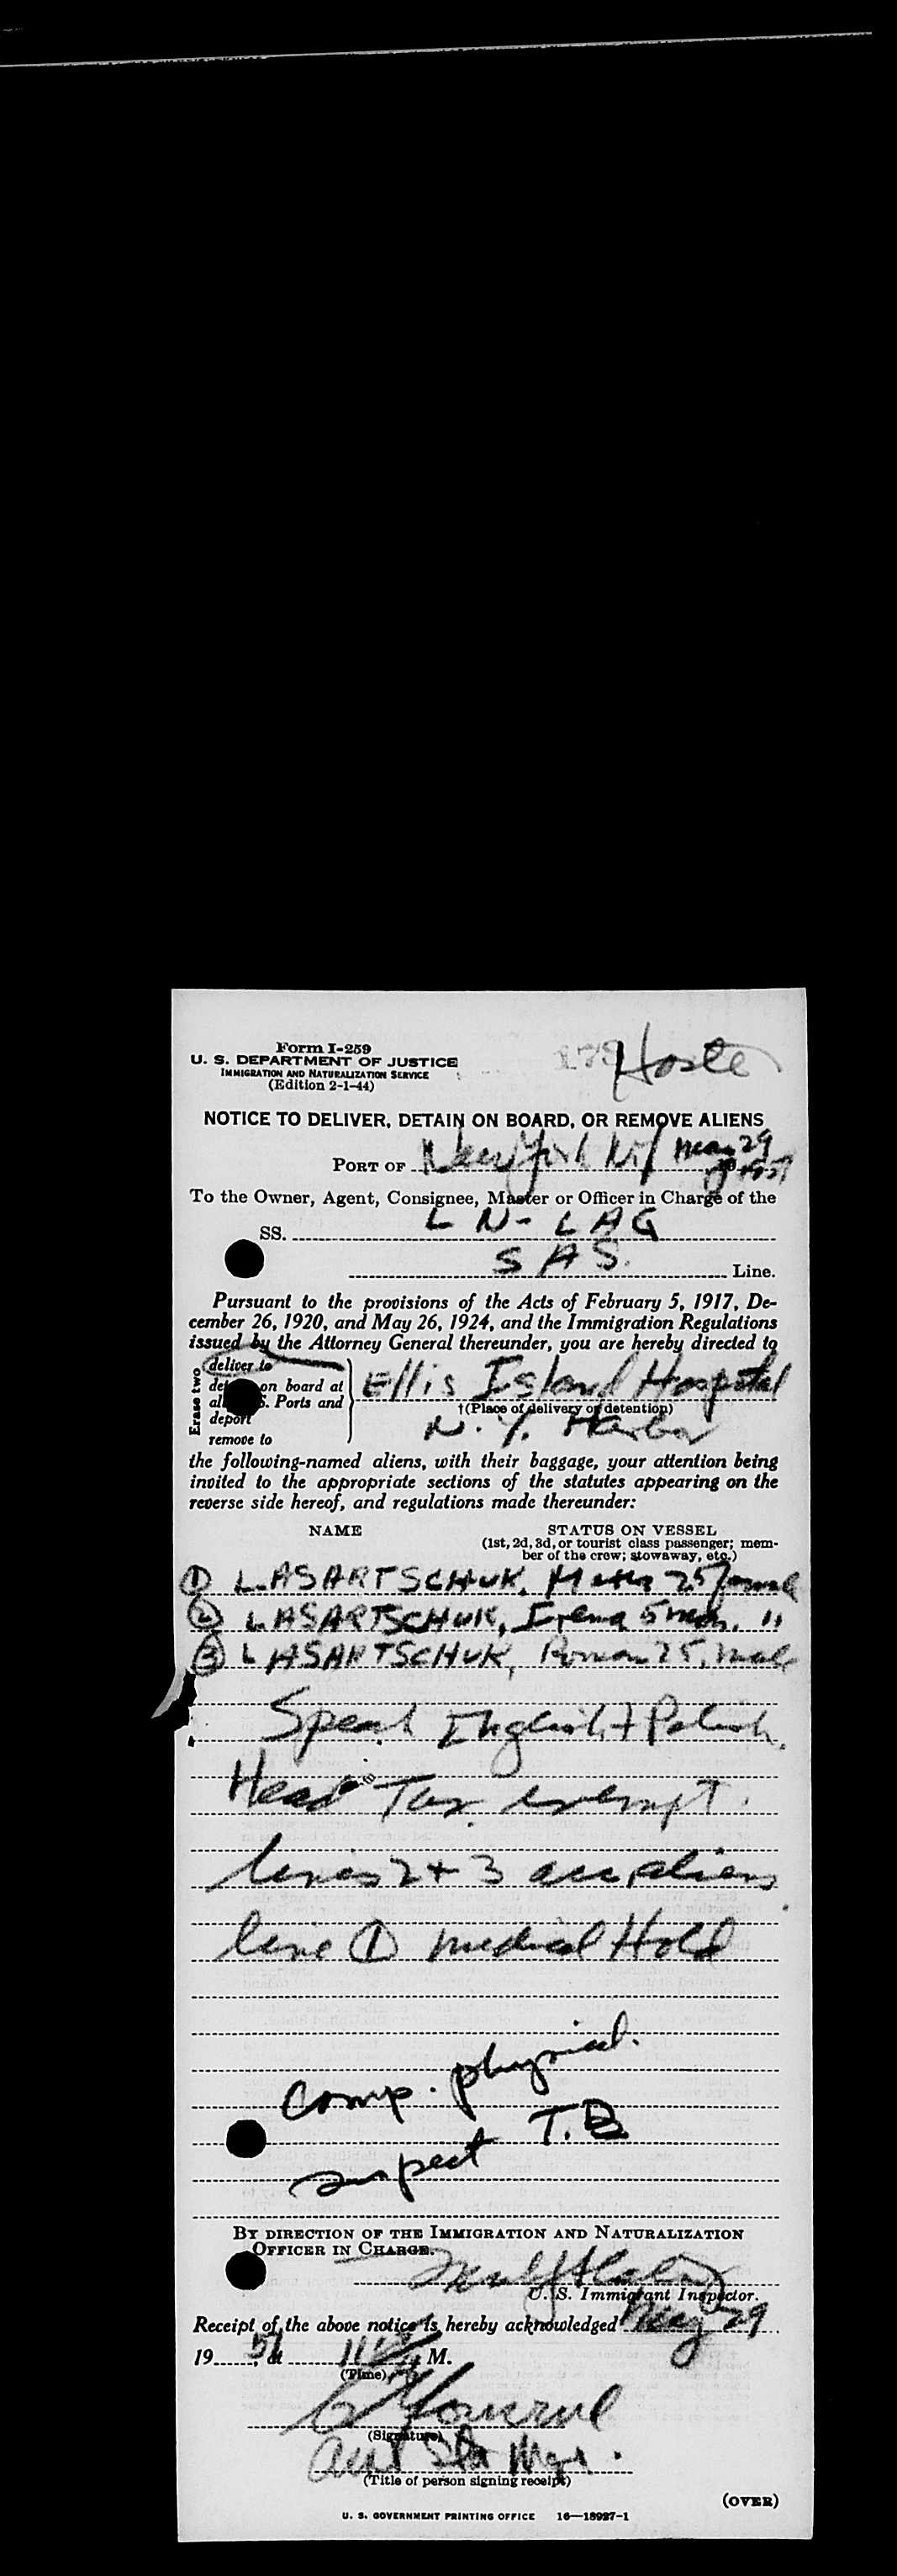 Form I-259
U. S. DEPARTMENT OF JUSTICE
IMMIGRATION AND NATURALIZATION SERVICE
(Edition 2-1-44)
NOTICE TO DELIVER, DETAIN ON BOARD, OR REMOVE ALIENS
PORT OF New York N.Y. May 29
To the Owner, Agent, Consignee, Master or Officer in Charge of the
SS. LN-LAG
SAS. Line.
Pursuant to the provisions of the Acts of February 5, 1917, De-
cember 26, 1920, and May 26, 1924, and the Immigration Regulations
issued by the Attorney General thereunder, you are hereby directed to
Erase two
deliver to
on board at
Ports and
deport
remove to
Ellis Island Hospital
†(Place of delivery or detention)
N. Y. Harbor
the following-named aliens, with their baggage, your attention being
invited to the appropriate sections of the statutes appearing on the
reverse side hereof, and regulations made thereunder:
NAME STATUS ON VESSEL
(1st, 2d, 3d, or tourist class passenger; mem-
ber of the crew; stowaway, etc.)
① LASARTSCHUK, 25 female
② LASARTSCHUK, Irena 5 mos. "
③ LASARTSCHUK, Roman 25, male
Speak English + Polish.
Head Tax exempt.
Lines 2 + 3 acc. aliens
line ① medical Hold
Comp. physical.
suspect T.B
BY DIRECTION OF THE IMMIGRATION AND NATURALIZATION
OFFICER IN CHARGE.
U. S. Immigrant Inspector.
Receipt of the above notice is hereby acknowledged May 29
19 51, at M.
(Time)
(Signature)
Asst Sta Mgr.
(Title of person signing receipt)
(OVER)
U. S. GOVERNMENT PRINTING OFFICE 16—18927-1